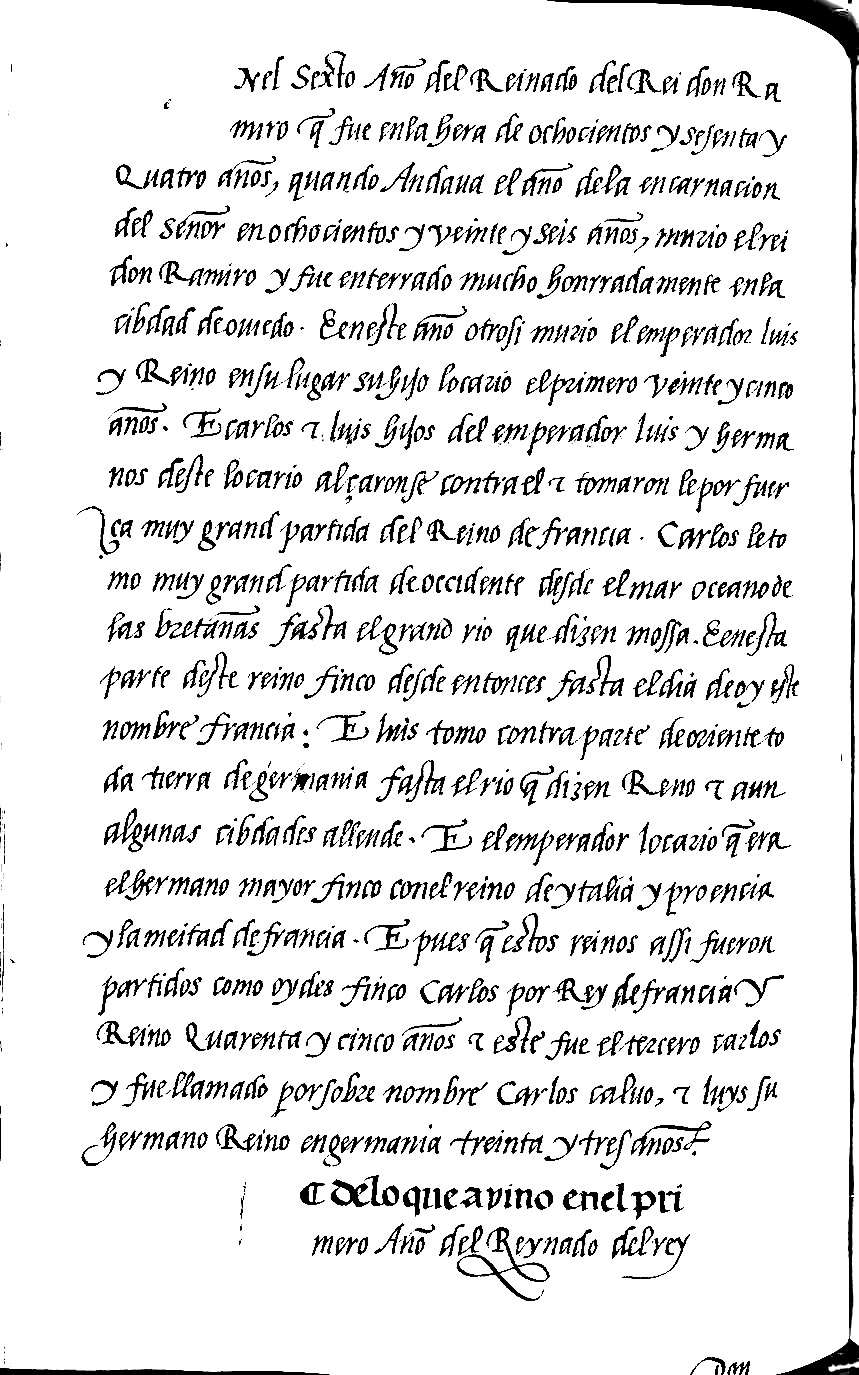 Nel Sexto Año del Reinado del Rei don Ra
miro q̃ fue enla hera de ochocientos y sesenta y
Quatro años, quando Andaua el año dela encarnacion
del señor en ochocientos y veinte y seis años, murio el rei
don Ramiro y fue enterrado mucho honrradamente enla
cibdad de ouiedo. E eneste año otrosi murio el emperador luis
y Reino en su lugar su hijo locario el primero veinte y cinco
años. E carlos ⁊ luis hijos del emperador luis y herma
nos deste locario alçaronse contra el ⁊ tomaron le por fuer
ça muy grand partida del Reino de francia. Carlos le to
mo muy grand partida de occidente desde el mar oceano de
las bretañas fasta el grand rio que dizen mossa. E enesta
parte deste reino finco desde entonces fasta el dia de oy este
nombre francia: E luis tomo contra parte de oriente to
da tierra de germania fasta el rio q̃ dizen Reno ⁊ aun
algunas cibdades allende. E el emperador locario q̃ era
el hermano mayor finco conel reino de ytalia y proencia
y la meitad de francia. E pues q̃ estos reinos assi fueron
partidos como oydes finco Carlos por Rey de francia y
Reino Quarenta y cinco años ⁊ este fue el tercero carlos
y fue llamado por sobre nombre Carlos caluo, ⁊ luys su
hermano Reino en germania treinta y tres años.
¶ de lo que avino enel pri
mero Año del Reynado del rey
Don